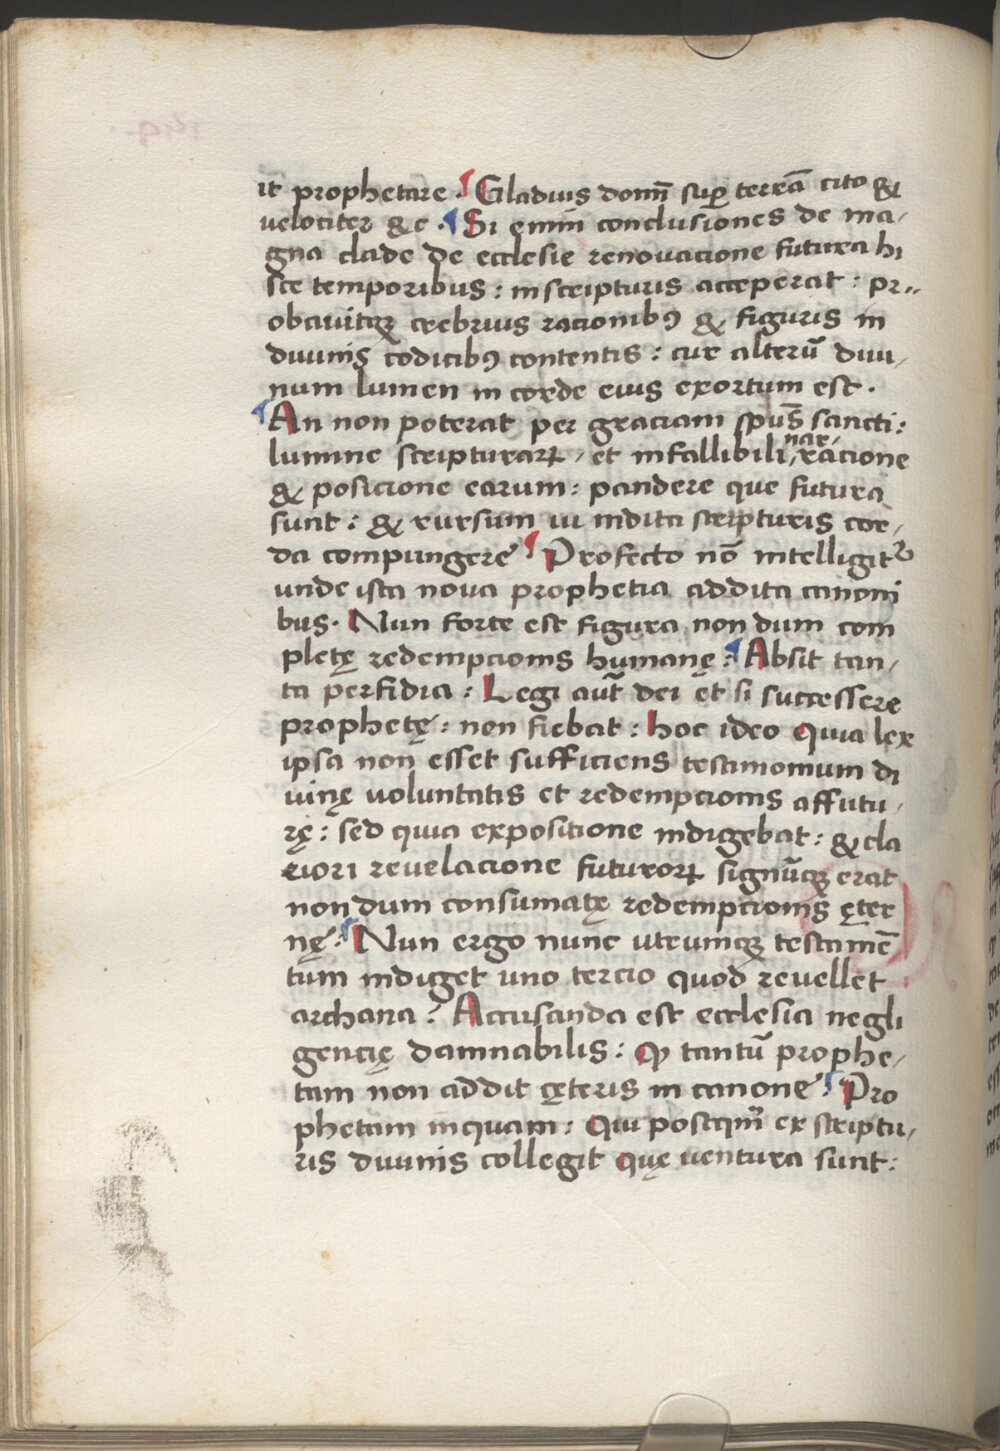 it prophetare. ¶ Gladius domī sup terrā cito &
velociter &c. ¶ Si enim conclusiones de ma-
gna clade de ecclesie renouacione futura hi
sce temporibus: in scripturis acceperat: pr-
obauitqꝫ crebrius racionibꝰ & figuris in
diuinis codicibꝰ contentis: cur alterū diui-
num lumen in corde eius exortum est.
¶ An non poterat per graciam spūs sancti:
lumine scripturaꝝ, et infallibili nar-racione
& posicione earum: pandere que futura
sunt: & rursum ui indita scripturis cor-
da compungere? ¶ Profecto nō intelligit᷑
unde ista noua prophetia addita canoni
bus. Nun forte est figura non dum com
pletę redempcionis humanę: ¶ Absit tan-
ta perfidia: Legi aūt dei et si successere
prophetę: non fiebat: hoc ideo Quia lex
ipsa non esset sufficiens testimonium di
uinę voluntatis et redempcionis affutu-
rę: sed quia expositione indigebat: & cla
riori reuelacione futuroꝝ signūcqꝫ erat
non dum consumatę redempcionis ęter
nę: ¶ Nun ergo nunc utrumqꝫ testamē
tum indiget uno tercio quod reuellet
archana? Accusanda est ecclesia negli
gencię damnabilis: Ꝙ tantū prophe-
tam non addit cęteris in canone? ¶ Pro
phetam inquam: Qui postqm̄ ex scriptu-
ris diuinis collegit quę uentura sunt: